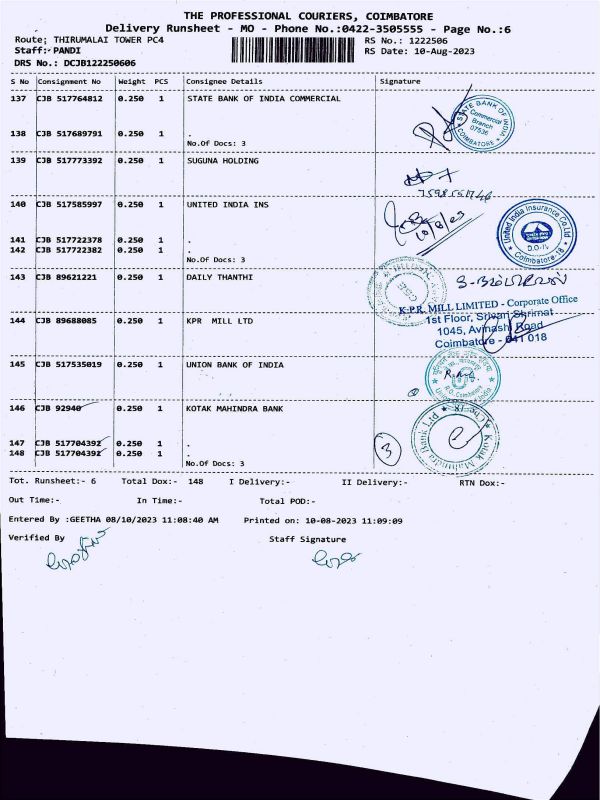 THE PROFESSIONAL COURIERS, COIMBATORE
Delivery Runsheet - MO - Phone No.:0422-3505555 - Page No.:6
Route: THIRUMALAI TOWER PC4 RS No.: 1222506
Staff:- PANDI RS Date: 10-Aug-2023
DRS No.: DCJB122250606
S No Consignment No Weight PCS Consignee Details Signature
137 CJB 517764812 0.250 1 STATE BANK OF INDIA COMMERCIAL
STATE BANK OF INDIA
Commercial
Branch
07536
COIMBATORE
138 CJB 517689791 0.250 1 .
No.Of Docs: 3
139 CJB 517773392 0.250 1 SUGUNA HOLDING
140 CJB 517585997 0.250 1 UNITED INDIA INS
10/8/23
United India Insurance Co.Ltd
D.O-IV
Coimbatore-18
141 CJB 517722378 0.250 1 .
142 CJB 517722382 0.250 1 .
No.Of Docs: 3
143 CJB 89621221 0.250 1 DAILY THANTHI
K.P.R. MILL LIMITED - Corporate Office
1st Floor, Srivari Shrimat
1045, Avinashi Road
Coimbatore - 641 018
144 CJB 89688085 0.250 1 KPR MILL LTD
145 CJB 517535019 0.250 1 UNION BANK OF INDIA
146 CJB 92940 0.250 1 KOTAK MAHINDRA BANK
Kotak Mahindra Bank Ltd
147 CJB 517704392 0.250 1 .
3
148 CJB 517704392 0.250 1 .
No.Of Docs: 3
Tot. Runsheet:- 6 Total Dox:- 148 I Delivery:- II Delivery:- RTN Dox:-
Out Time:- In Time:- Total POD:-
Entered By :GEETHA 08/10/2023 11:08:40 AM Printed on: 10-08-2023 11:09:09
Verified By Staff Signature